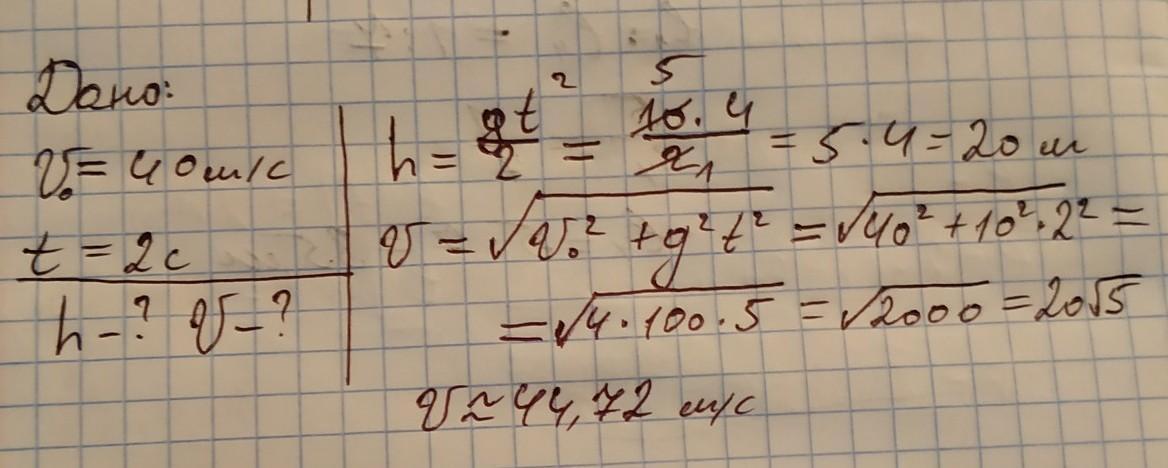 Дано:
v₀ = 40 м/с
t = 2 с
h - ? v - ?
h = gt²/2 = 10·4/2 = 5·4 = 20 м
v = √(v₀² + g²t²) = √(40² + 10²·2²) =
= √(4·100·5) = √2000 = 20√5
v ≈ 44,72 м/с